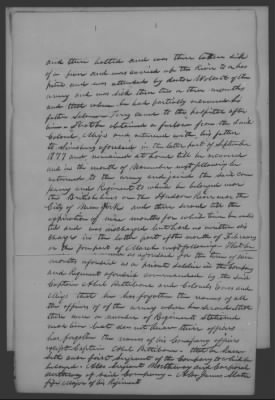 and then halted and was there taken sick
of a fever and was carried up the River to a hos
pital and was attended by doctor Wolcott of the
army and was sick there two or three months
and that when he had partially recovered his
father Salmon came to the hospital after
him - that he obtained a furlow from the said
Colonel Meigs and returned with his father
to Simsbury aforesaid in the later part of September
1777 and remained at home till he recovered
and in the month of November next following he
returned to the army and joined the said com
pany and Regiment to which he belonged near
the on the Hudson River near the
City of New York and there served till the
expiration of nine months for which time he enlis
ted and was discharged but had no written dis
charge in the latter part of the month of February
or the forepart of March next following - That he
as aforesaid for the term of nine
months aforesaid as a private soldier in the company
and Regiment aforesaid commanded by the said
Captain Abel Pettibone and Colonels Enos and
Meigs that he has forgotten the names of all
the officers of the army where he served that
there were a number of Regiments stationed
near him but does not know their officers
has forgotten the names of his Company officers
except Captain Abel Pettibone - that
was first Sergeant of the Company to which he
belonged - Also Sergeant and Corporal
of said Company - Also James
Major of his Regiment